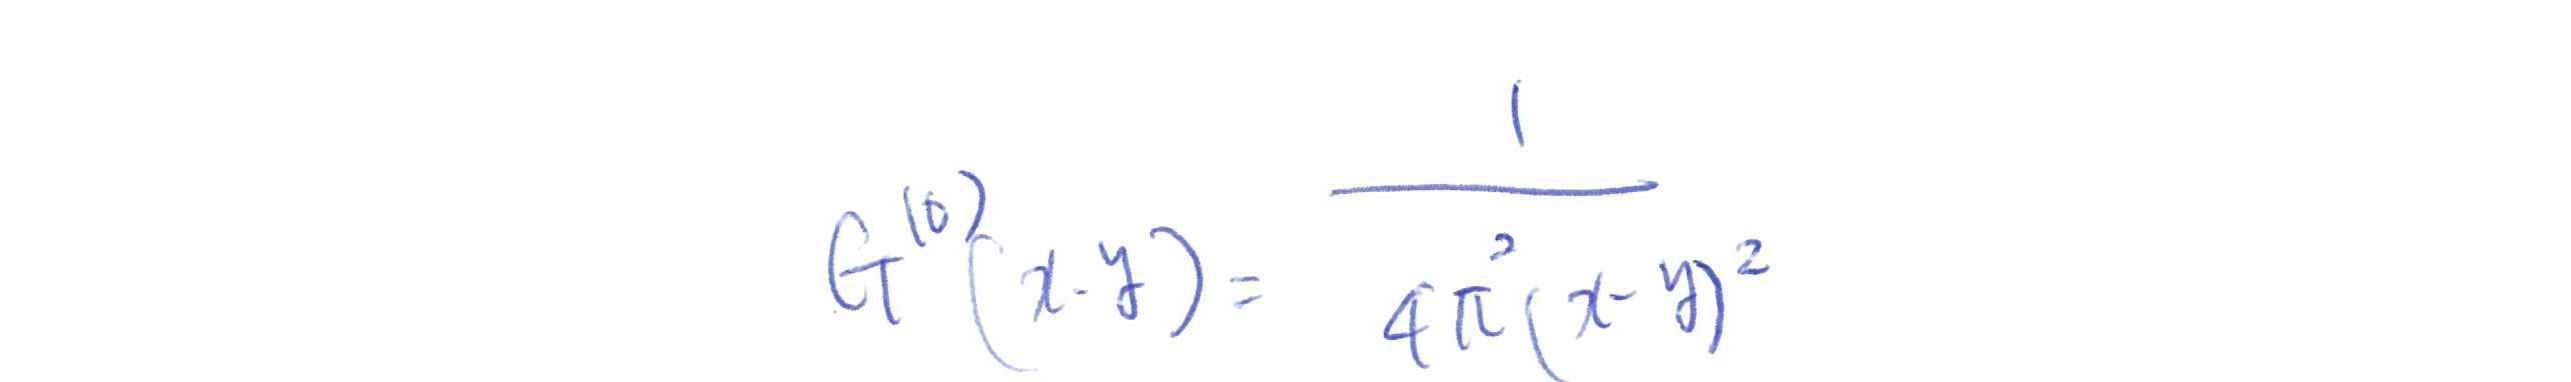 G^{(0)}(x-y) = \frac{1}{4\pi^2(x-y)^2}